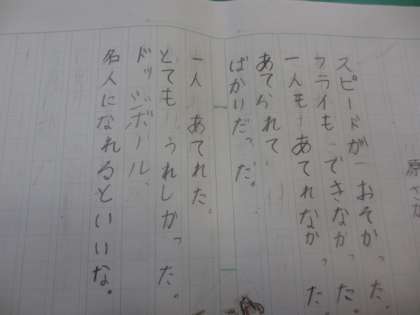 スピードがおそかった。
フライもできなかった。
一人もあてれなかった。
あてられて
ばかりだった。
一人あてれた。
とてもうれしかった。
ドッジボール、
名人になれるといいな。